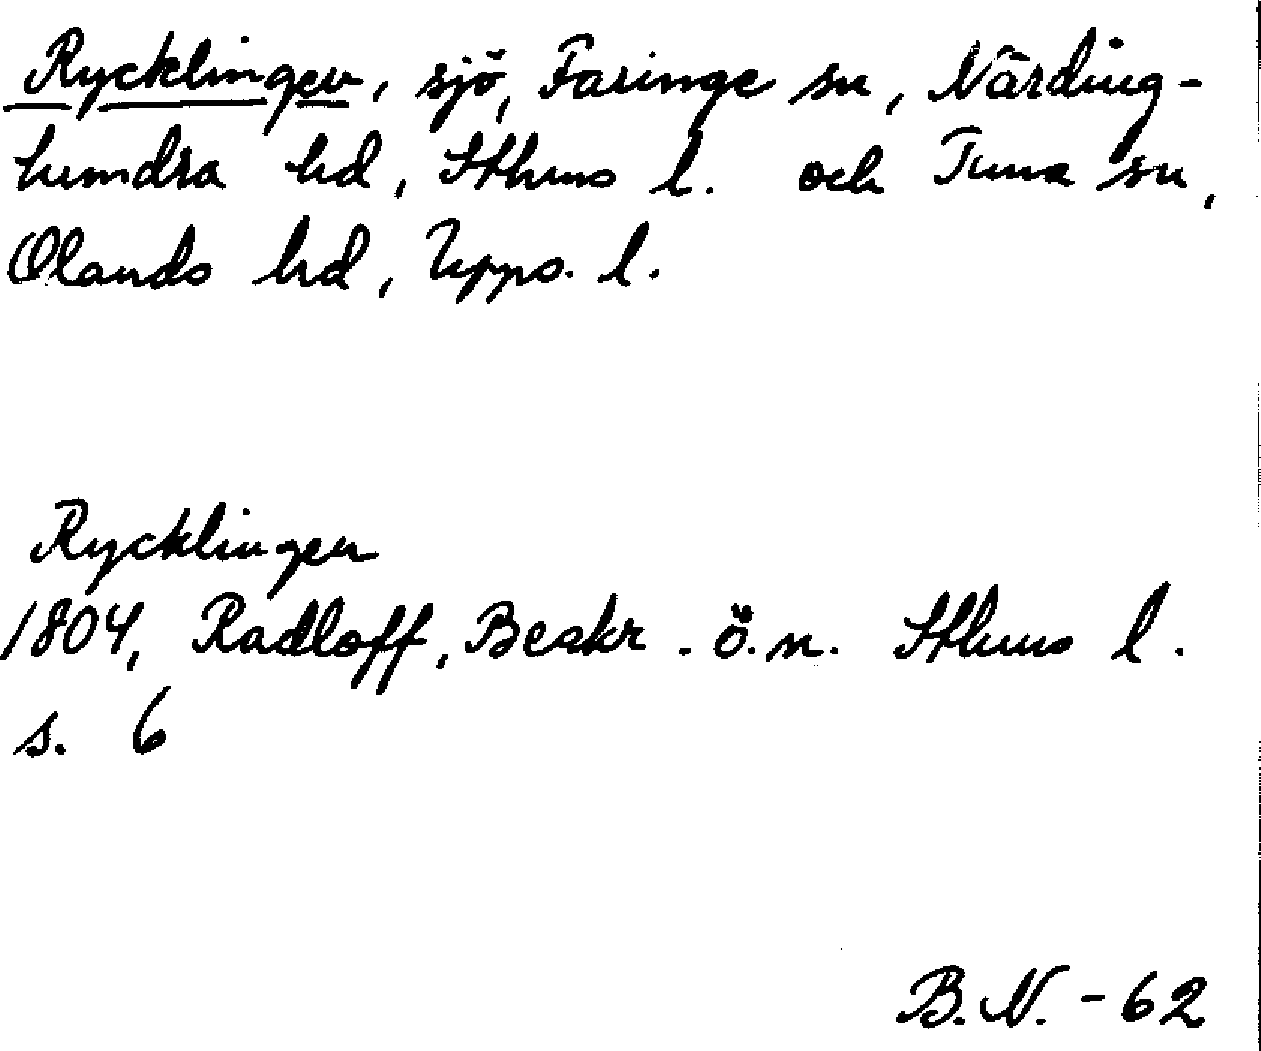 Rycklingen, sjö, Faringe sn, Närding-
hundra hd, Sthms l. och Tuna sn,
Olands hd, Upps. l.
Rycklingen
1804, Radloff, Beskr. ö. n. Sthms l.
s. 6
B.N. - 62